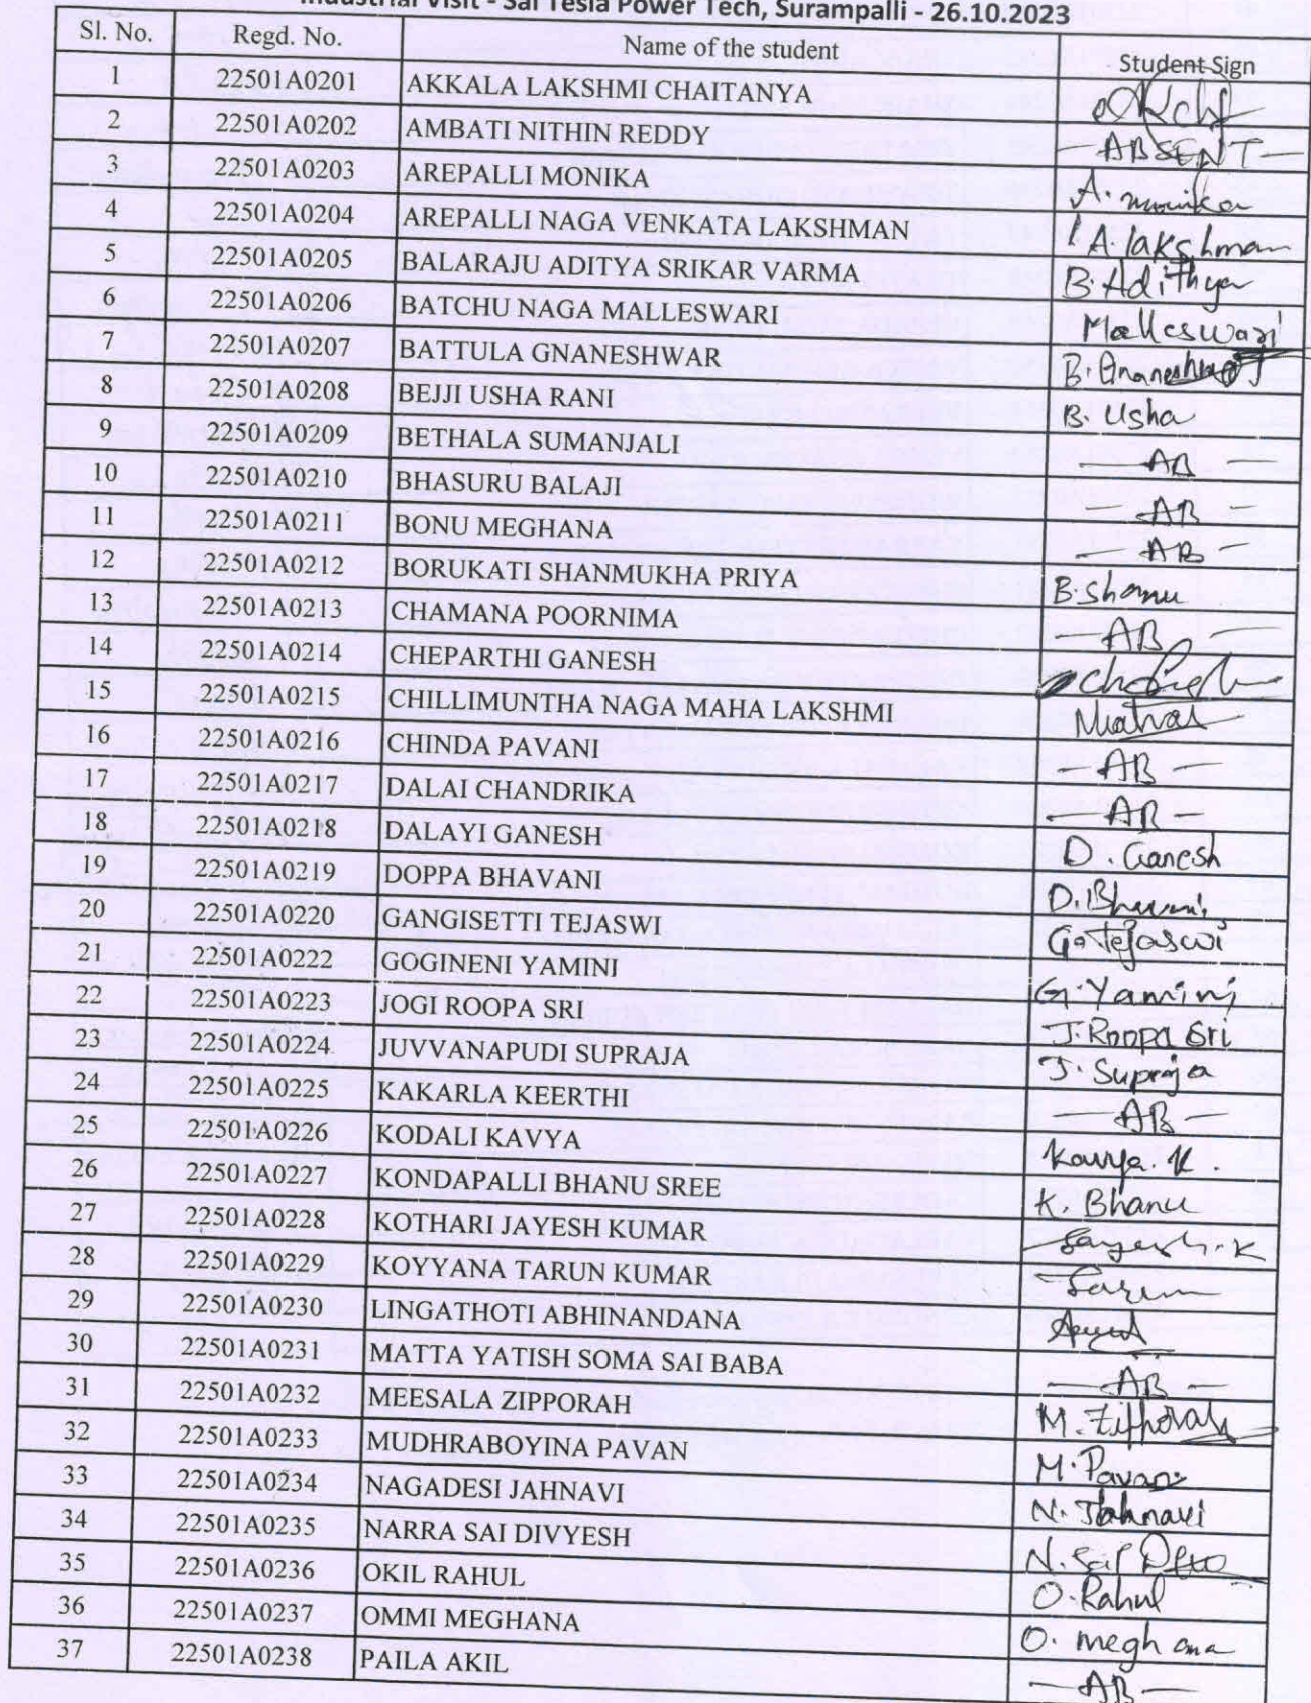 Industrial Visit - Sai Tesla Power Tech, Surampalli - 26.10.2023
Sl. No. Regd. No. Name of the student Student Sign
1 22501A0201 AKKALA LAKSHMI CHAITANYA
2 22501A0202 AMBATI NITHIN REDDY — ABSENT —
3 22501A0203 AREPALLI MONIKA A. monika
4 22501A0204 AREPALLI NAGA VENKATA LAKSHMAN A. lakshman
5 22501A0205 BALARAJU ADITYA SRIKAR VARMA B. Adithya
6 22501A0206 BATCHU NAGA MALLESWARI Malleswari
7 22501A0207 BATTULA GNANESHWAR B. Gnaneshwar
8 22501A0208 BEJJI USHA RANI B. Usha
9 22501A0209 BETHALA SUMANJALI — AB —
10 22501A0210 BHASURU BALAJI — AB —
11 22501A0211 BONU MEGHANA — AB —
12 22501A0212 BORUKATI SHANMUKHA PRIYA B. Shanu
13 22501A0213 CHAMANA POORNIMA — AB —
14 22501A0214 CHEPARTHI GANESH
15 22501A0215 CHILLIMUNTHA NAGA MAHA LAKSHMI
16 22501A0216 CHINDA PAVANI — AB —
17 22501A0217 DALAI CHANDRIKA — AB —
18 22501A0218 DALAYI GANESH D. Ganesh
19 22501A0219 DOPPA BHAVANI D. Bhavani
20 22501A0220 GANGISETTI TEJASWI G. Tejaswi
21 22501A0222 GOGINENI YAMINI G. Yamini
22 22501A0223 JOGI ROOPA SRI J. Roopa Sri
23 22501A0224 JUVVANAPUDI SUPRAJA J. Supraja
24 22501A0225 KAKARLA KEERTHI — AB —
25 22501A0226 KODALI KAVYA Kavya. K.
26 22501A0227 KONDAPALLI BHANU SREE K. Bhanu
27 22501A0228 KOTHARI JAYESH KUMAR Jayesh. K
28 22501A0229 KOYYANA TARUN KUMAR Tarun
29 22501A0230 LINGATHOTI ABHINANDANA
30 22501A0231 MATTA YATISH SOMA SAI BABA — AB —
31 22501A0232 MEESALA ZIPPORAH M. Zipporah
32 22501A0233 MUDHRABOYINA PAVAN M. Pavan
33 22501A0234 NAGADESI JAHNAVI N. Jahnavi
34 22501A0235 NARRA SAI DIVYESH N. Sai
35 22501A0236 OKIL RAHUL O. Rahul
36 22501A0237 OMMI MEGHANA O. meghana
37 22501A0238 PAILA AKIL — AB —